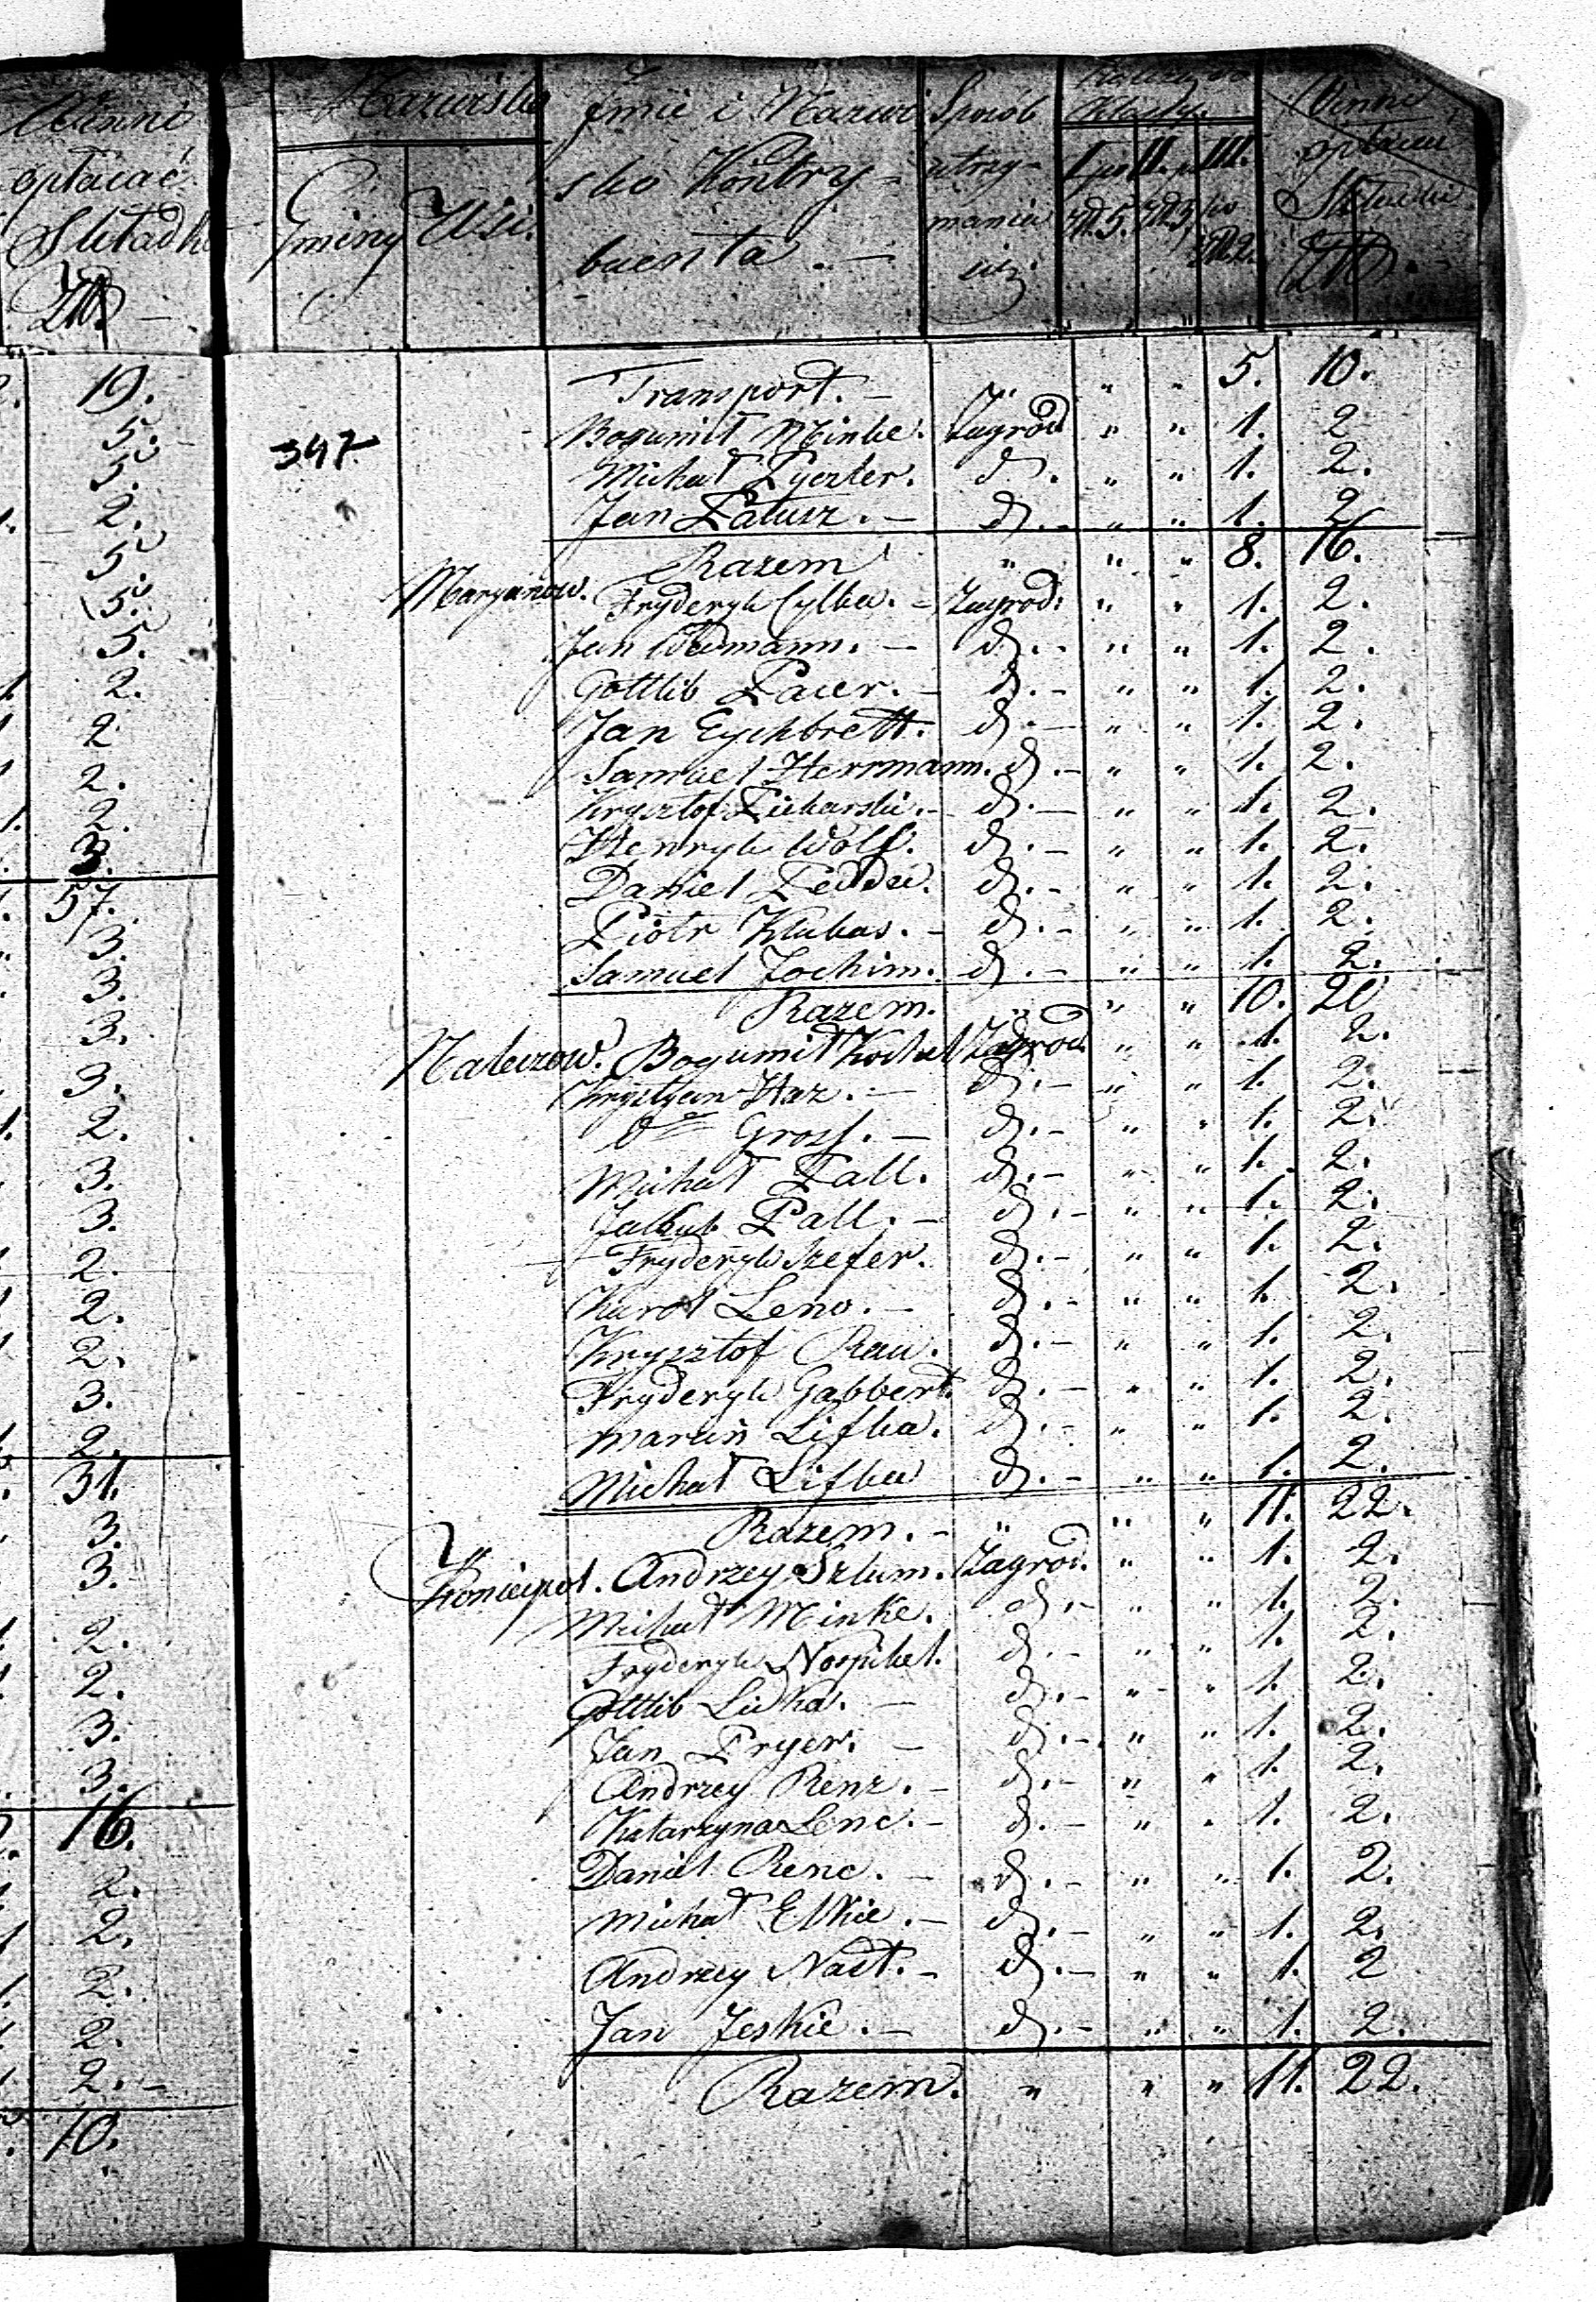 Winni
opłacać
Składkę
Zł
19.
5.
5.
2.
5.
5.
5.
2.
2
2.
2.
3.
57.
3.
3.
3.
3.
2.
3.
3.
2.
2.
2.
3.
2.
31.
3.
3.
2.
2.
3.
3.
16.
2.
2.
2.
2.
2.
10.
Nazwisko
Gminy Wsi.
Imie i Nazwi
sko Kontry-
buenta.
Sposób
utrzy-
mania
się
Klassy.
I po II. po III.
Zł. 5. Zł. 3. po
Zł. 2.
Winni
opłacać
Składki
Zł.
Transport. „ „ „ 5. 10.
347 Bogumił Minke. Zagrod „ „ 1. 2
Michał Pyezler. d. „ „ 1. 2.
Jan Patusz. d. „ „ 1. 2
Razem „ „ „ 8. 16.
Maryanow. Fryderyk Cylka. Zagrod: „ „ 1. 2.
Jan Wedmann. d. „ „ 1. 2.
Gottlib Pacer. d. „ „ 1. 2.
Jan Eychbrett. d. „ „ 1. 2.
Samuel Herrmann. d. „ „ 1. 2.
Krysztof Piekarski. d. „ „ 1. 2.
Henryk Wolf. d. „ „ 1. 2.
Daniel d. „ „ 1. 2.
Piotr Klukas. d. „ „ 1. 2.
Samuel Jochim. d. „ „ 1. 2.
Razem. „ „ „ 10. 20
Bogumił Zagrod. „ „ 1. 2.
Krystyan Haz. d. „ „ 1. 2.
do Gross. d. „ „ 1. 2.
Michał Pall. d. „ „ 1. 2.
Jakub Pall. d. „ „ 1. 2.
Fryderyk Szefer. d. „ „ 1. 2.
Karol Leno. d. „ „ 1. 2.
Krysztof Rau. d. „ „ 1. 2.
Fryderyk Gabbert. d. „ „ 1. 2.
Marcin Lifka. d. „ „ 1. 2.
Michał Lifka d. „ „ 1. 2.
Razem. „ „ „ 11. 22.
Koniecpol. Andrzey Szlum. Zagrod. „ „ 1. 2.
Michał Minke. d. „ „ 1. 2.
Fryderyk d. „ „ 1. 2.
Gottlib Lidka. d. „ „ 1. 2.
Jan Pryer. d. „ „ 1. 2.
Andrzey Renz. d. „ „ 1. 2.
Katarzyna Lenc. d. „ „ 1. 2.
Daniel Renc. d. „ „ 1. 2.
Michał Elkie. d. „ „ 1. 2.
Andrzey Nast. d. „ „ 1. 2
Jan Jeskie. d. „ „ 1. 2.
Razem. „ „ „ 11. 22.